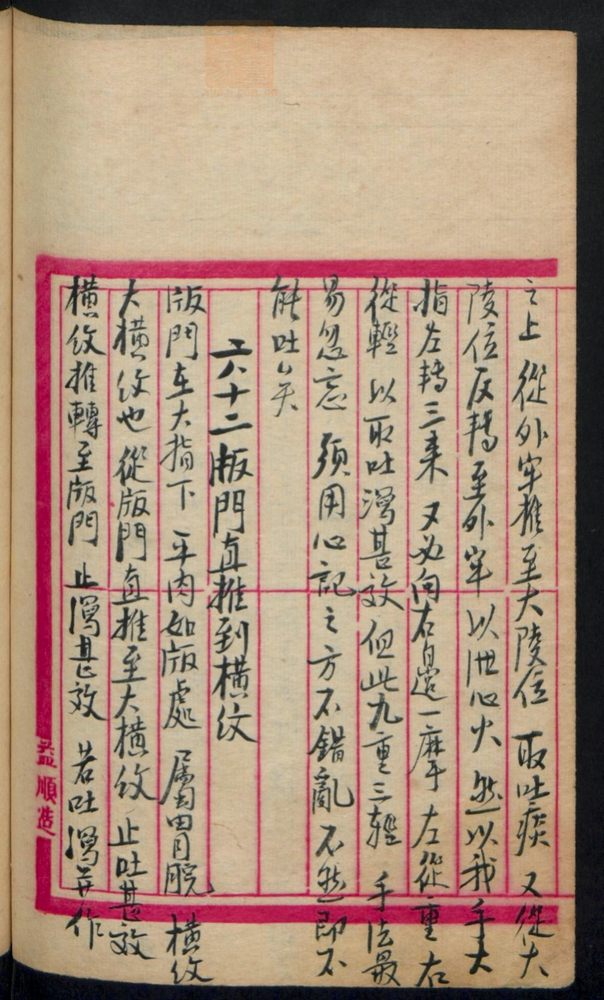 之上 從外牢推至大陵位 取吐痰 又從大
陵位反轉至外牢 以泄心火 然以我手大
指左轉三來 又必向右邊一摩 左從重右
從輕 以取吐瀉甚效 但此九重三輕 手法最
易忽忘 須用心記之方不錯亂 不然即不
能吐矣
六十二版門直推到橫紋
版門在大指下 平肉如版處 屬胃脘 橫紋
大橫紋也 從版門直推至大橫紋 止吐甚效
橫紋推轉至版門 止瀉甚效 若吐瀉並作
益順造